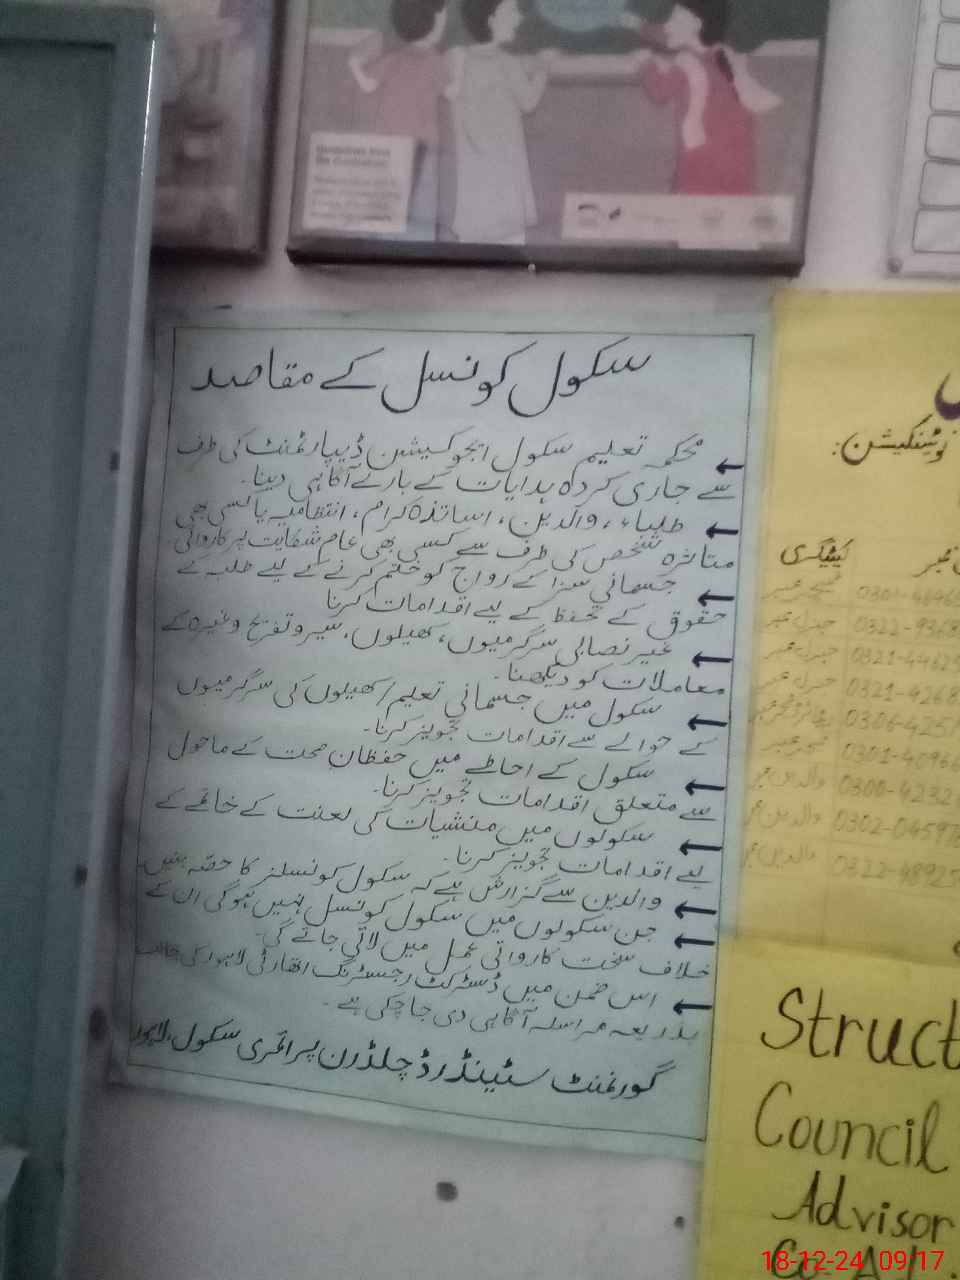 سکول کونسل کے مقاصد
محکمہ تعلیم سکول ایجوکیشن ڈیپارٹمنٹ کی طرف
سے جاری کردہ ہدایات کے بارے آگاہی دینا۔
طلباء، والدین، اساتذہ کرام، انتظامیہ یا کسی بھی
متاثرہ شخص کی طرف سے کسی بھی عام شکایت پر کاروائی۔
جسمانی سزا کے رواج کو ختم کرنے کے لیے طلبہ کے
حقوق کے تحفظ کے لیے اقدامات کرنا
غیر نصابی سرگرمیوں، کھیلوں، سیر و تفریح وغیرہ کے
معاملات کو دیکھنا۔
سکول میں جسمانی تعلیم/کھیلوں کی سرگرمیوں
کے حوالے سے اقدامات تجویز کرنا۔
سکول کے احاطے میں حفظان صحت کے ماحول
سے متعلق اقدامات تجویز کرنا۔
سکولوں میں منشیات کی لعنت کے خاتمے کے
لیے اقدامات تجویز کرنا۔
والدین سے گزارش ہے کہ سکول کونسلز کا حصہ بنیں
جن سکولوں میں سکول کونسل نہیں ہوگی ان کے
خلاف سخت کاروائی عمل میں لائی جائے گی۔
اس ضمن میں ڈسٹرکٹ رجسٹرنگ اتھارٹی لاہور کی جانب
بذریعہ مراسلہ آگاہی دی جا چکی ہے۔
گورنمنٹ سٹینڈرڈ چلڈرن پرائمری سکول، لاہور
نوٹیفکیشن:
کیٹیگری
0301-4696
0322-9368
0321-4462
0321-4268
0306-4257
0301-4096
0300-4232
0302-04597
0322-48925
Struct
Council
Advisor
Co
18-12-24 09:17